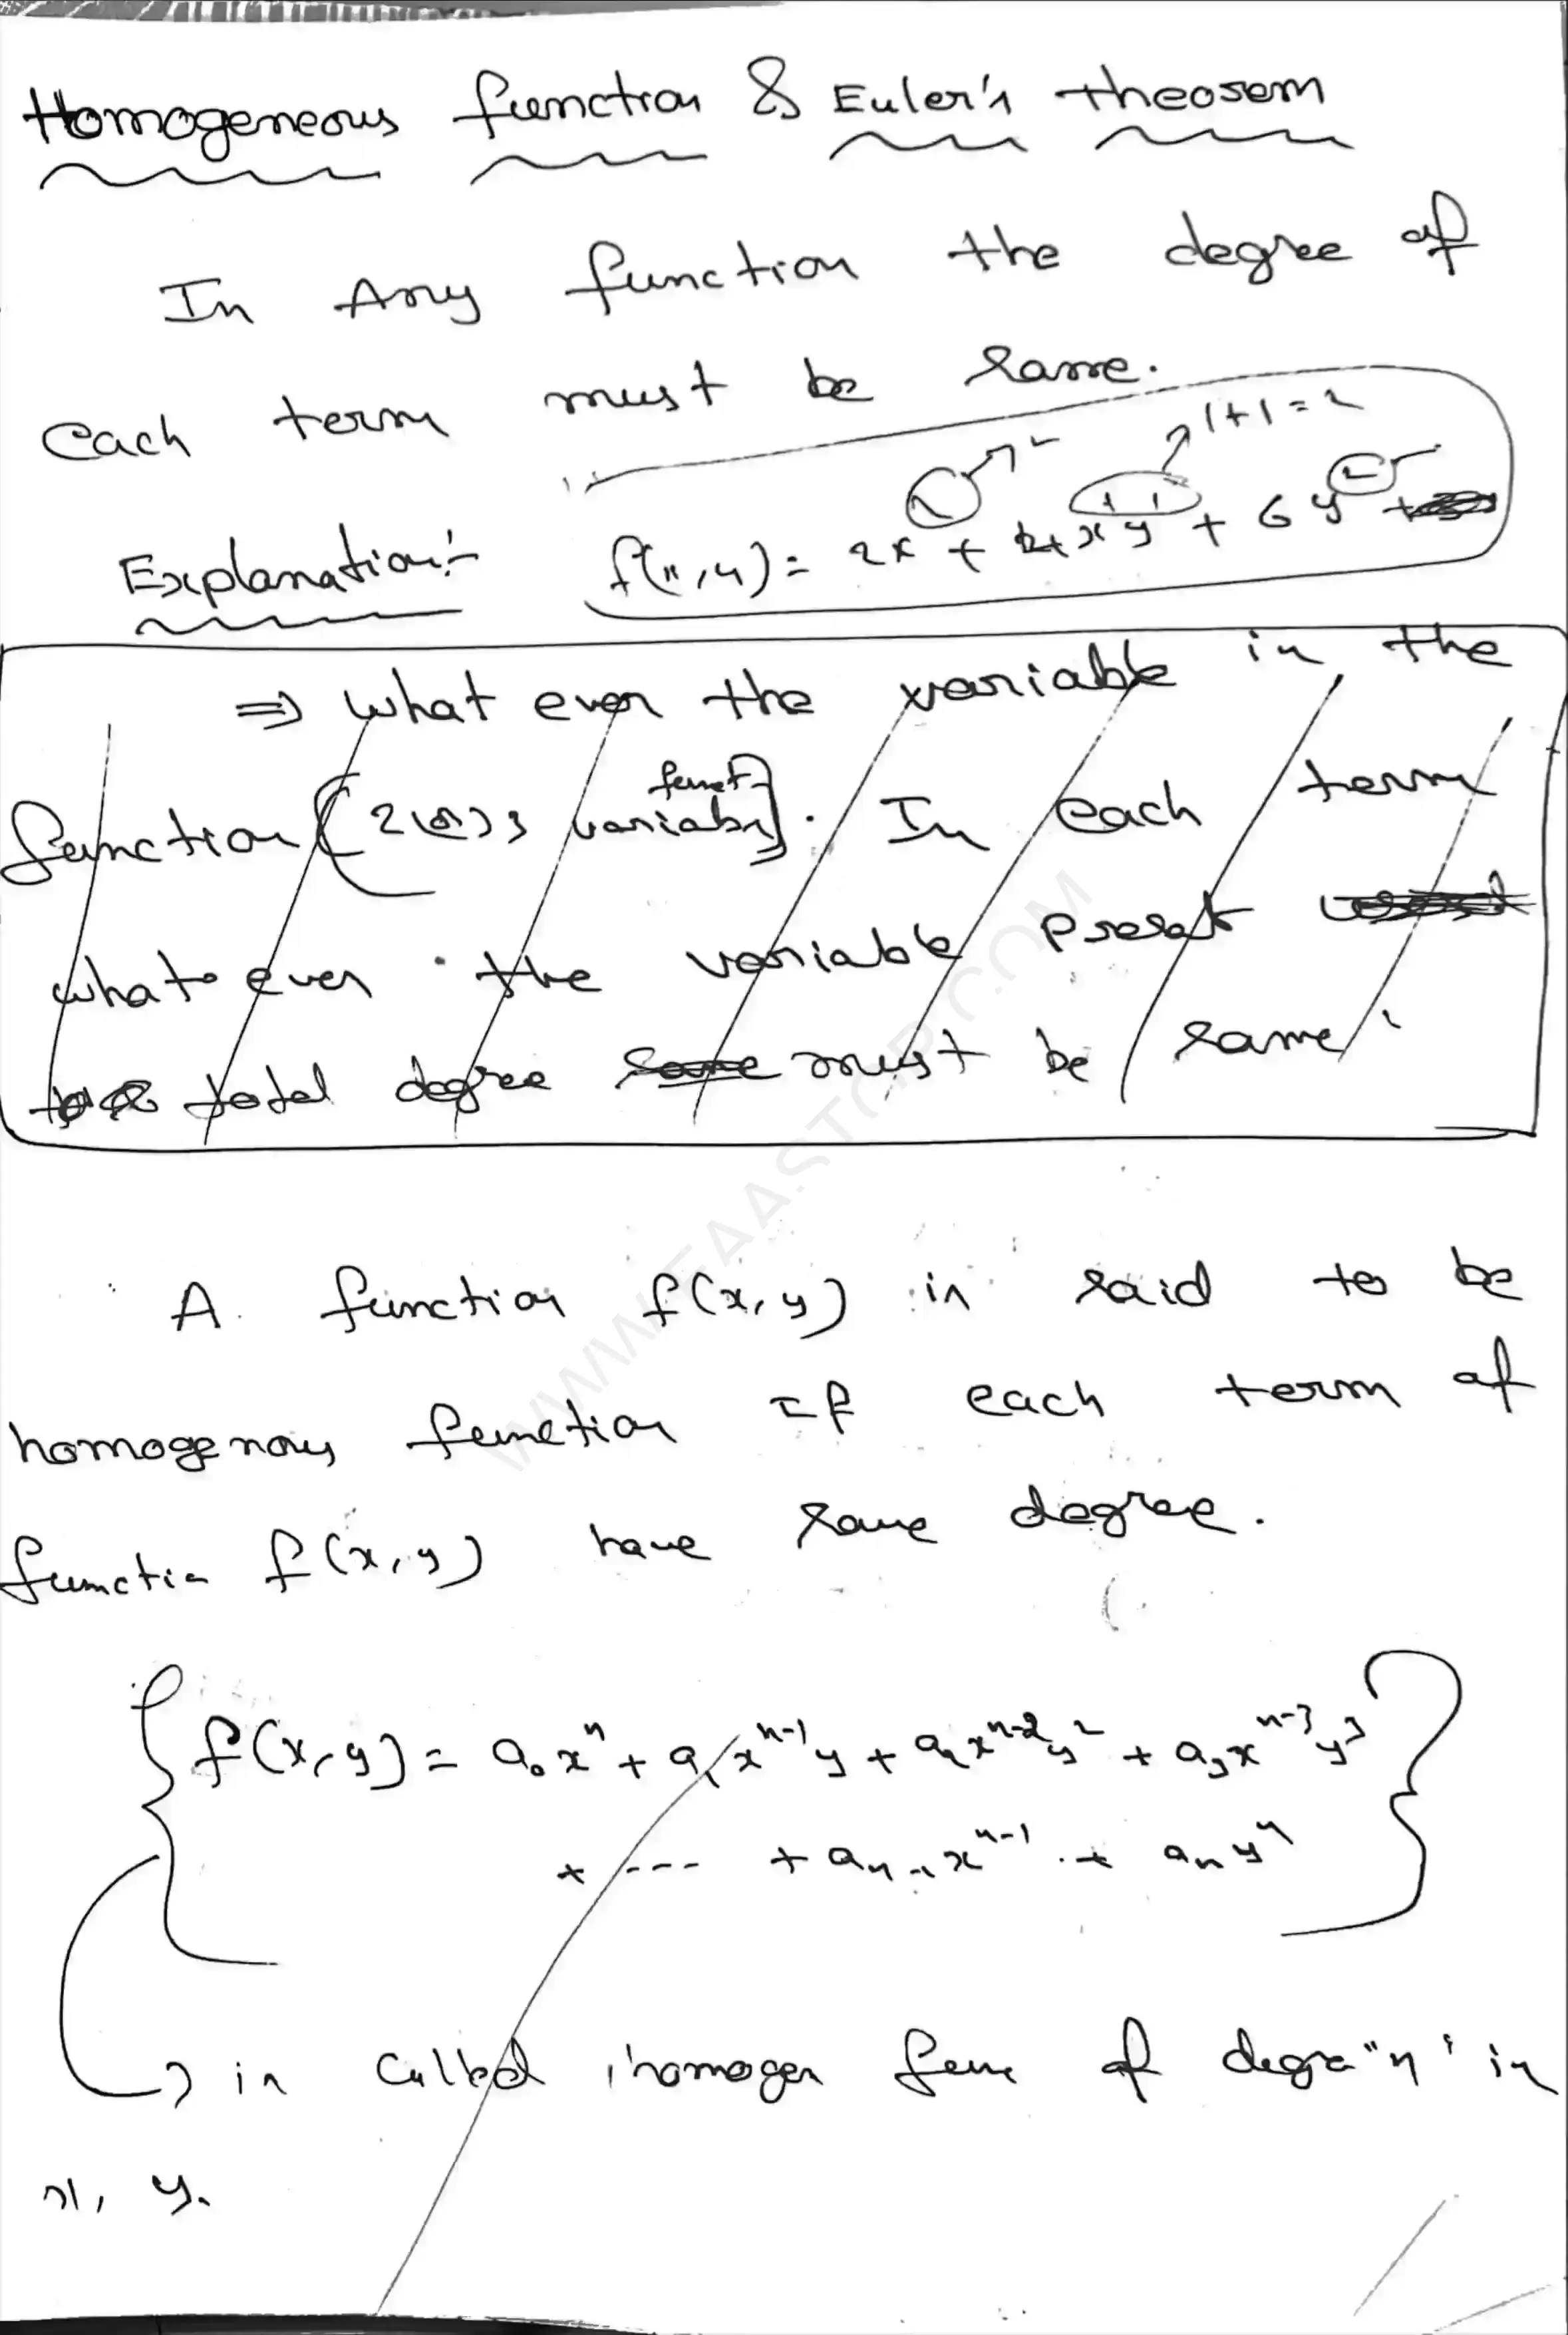 Homogeneous function & Euler's theorem
In Any function the degree of
each term must be same.
1+1=2
Explanation:- f(x,y) = 2x² + 4x¹y¹ + 6y² +
⇒ what ever the variable in the
funct
function (2(or)3 variabl]. In each term
what ever the variable preset
total degree same must be same
A function f(x,y) is said to be
homogenous function If each term of
functin f(x,y) have same degree.
f(x,y) = a₀xⁿ + a₁xⁿ⁻¹y + a₂xⁿ⁻²y² + a₃xⁿ⁻³y³
+ --- + aₙ₋₁xⁿ⁻¹ + aₙyⁿ
is called homogen func of degre "n" in
x, y.
WWW.FAASTOP.COM